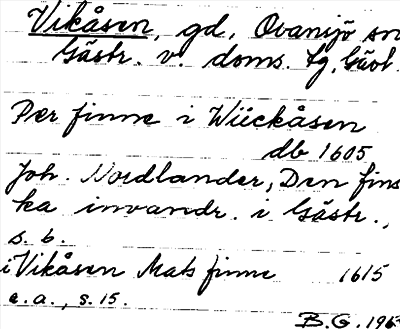 Vikåsen, gd, Ovansjö sn
Gästr. v. doms. tg. Gävl
Per finne i Wiickåsen
db 1605
Joh. Nordlander, Den fins
ka invandr. i Gästr.,
s. 6.
i Vikåsen Mats finne 1615
a. a., s. 15.
B.G. 196